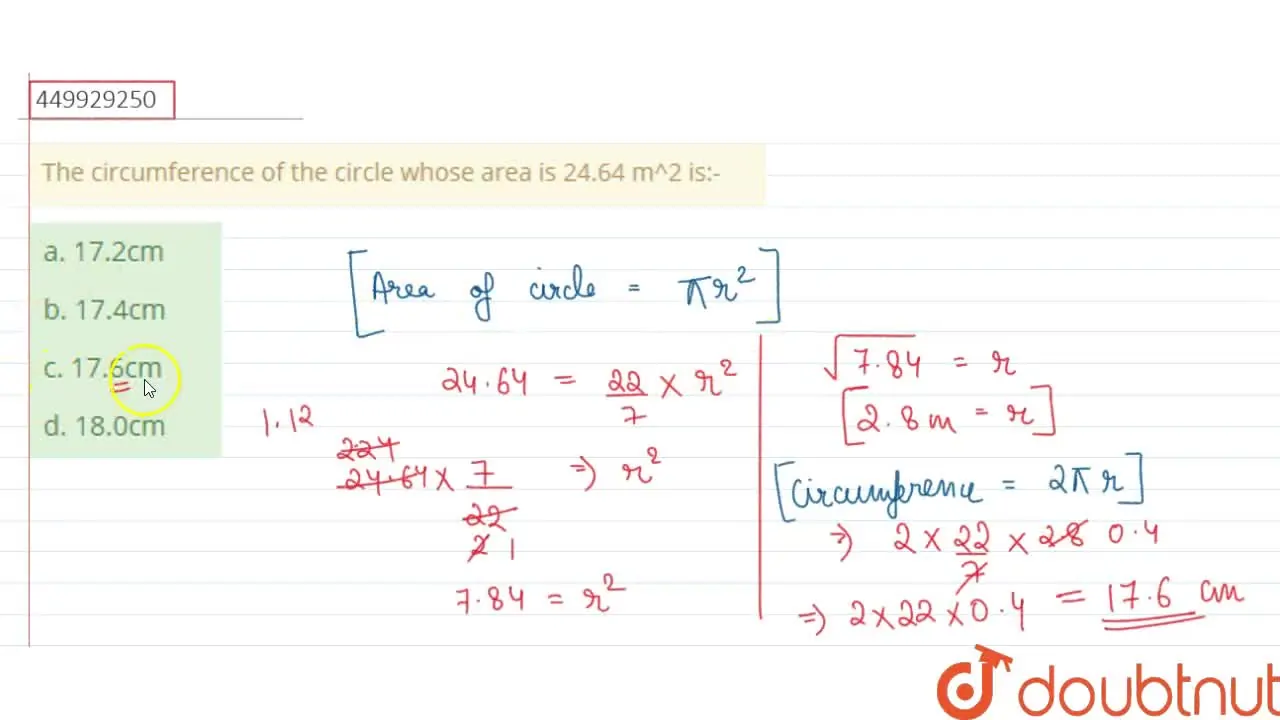 449929250
The circumference of the circle whose area is 24.64 m^2 is:-
a. 17.2cm
b. 17.4cm
c. 17.6cm
d. 18.0cm
[Area of circle = πr²]
24.64 = 22/7 × r²
1.12
2.24
24.64 × 7/22 ⇒ r²
2 1
7.84 = r²
√7.84 = r
[2.8m = r]
[Circumference = 2πr]
⇒ 2 × 22/7 × 28 0.4
⇒ 2×22×0.4 = 17.6 cm
doubtnut